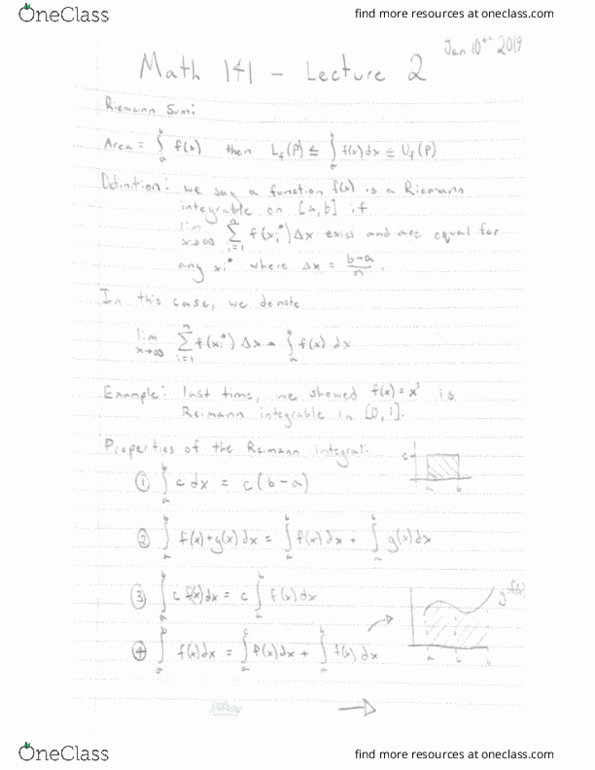 OneClass
find more resources at oneclass.com
Jan 10th 2019
Math 141 - Lecture 2
Riemann Sum:
Area = ∫_a^b f(x) then L_f(P) ≤ ∫_a^b f(x)dx ≤ U_f(P)
Defintion: we say a function f(x) is a Riemann
integrable on [a,b] if
lim x→∞ Σ_{i=1}^n f(xi*) Δx exists and are equal for
any xi* where Δx = (b-a)/n.
In this case, we denote
lim x→∞ Σ_{i=1}^n f(xi*) Δx = ∫_a^b f(x) dx
Example: last time, we showed f(x) = x² is
Reimann integrable in [0,1].
Properties of the Reimann integral:
① ∫_a^b c dx = c(b-a)
c
a b
② ∫_a^b f(x)+g(x)dx = ∫_a^b f(x)dx + ∫_a^b g(x)dx
③ ∫_a^b c f(x)dx = c ∫_a^b f(x)dx
④ ∫_a^b f(x)dx = ∫_a^c f(x)dx + ∫_c^b f(x)dx
a c b
OneClass
find more resources at oneclass.com